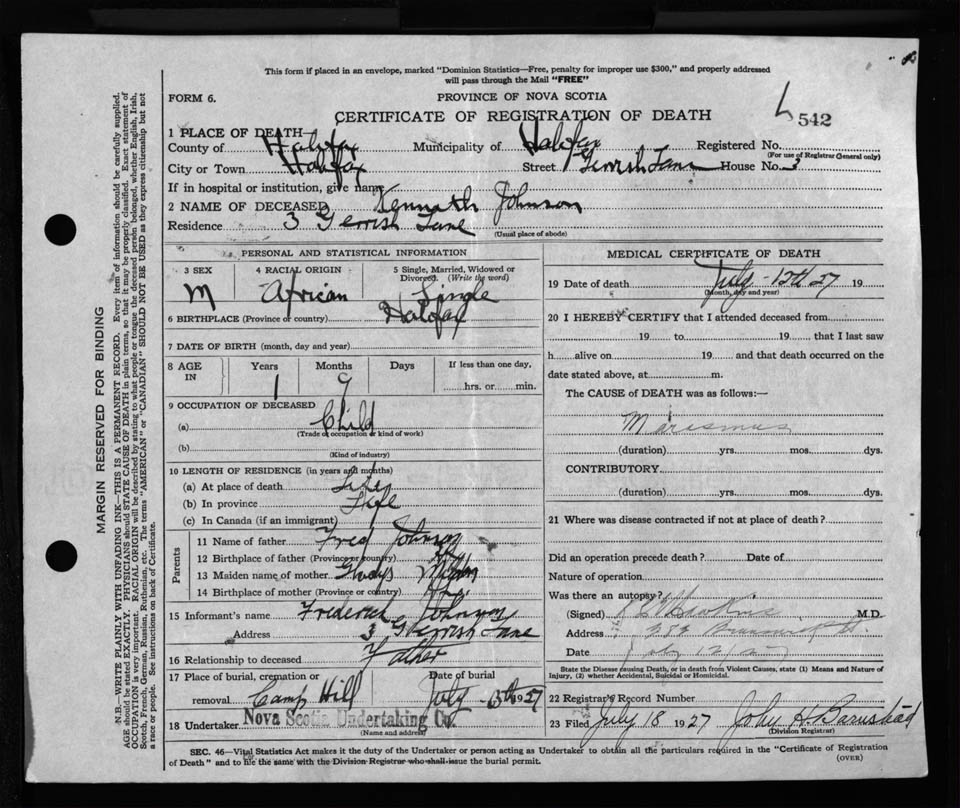 This form if placed in an envelope, marked "Dominion Statistics—Free, penalty for improper use $300," and properly addressed
will pass through the Mail "FREE"
FORM 6.
PROVINCE OF NOVA SCOTIA
CERTIFICATE OF REGISTRATION OF DEATH
542
1 PLACE OF DEATH—
County of Halifax Municipality of Halifax Registered No.
(For use of Registrar General only)
City or Town Halifax Street Gerrish Lane House No. 3
If in hospital or institution, give name
2 NAME OF DECEASED Kennath Johnson
Residence 3 Gerrish Lane
(Usual place of abode)
PERSONAL AND STATISTICAL INFORMATION
3 SEX 4 RACIAL ORIGIN 5 Single, Married, Widowed or Divorced. (Write the word)
M African Single
6 BIRTHPLACE (Province or country) Halifax
7 DATE OF BIRTH (month, day and year)
8 AGE IN Years Months Days If less than one day,
1 9 hrs. or min.
9 OCCUPATION OF DECEASED
(a) Child
(Trade or occupation or kind of work)
(b)
(Kind of industry)
10 LENGTH OF RESIDENCE (in years and months)
(a) At place of death Life
(b) In province Life
(c) In Canada (if an immigrant)
Parents
11 Name of father Fred Johnson
12 Birthplace of father (Province or country)
13 Maiden name of mother Gladys
14 Birthplace of mother (Province or country)
15 Informant's name Frederick Johnson
Address 3 Gherrish Lane
16 Relationship to deceased Father
17 Place of burial, cremation or removal Camp Hill Date of burial July 13th 1927
18 Undertaker Nova Scotia Undertaking Co.
(Name and address)
MEDICAL CERTIFICATE OF DEATH
19 Date of death July 12th 27 19
(Month, day and year)
20 I HEREBY CERTIFY that I attended deceased from
19 to 19 that I last saw
h alive on 19 and that death occurred on the
date stated above, at m.
The CAUSE OF DEATH was as follows:—
Marasmus
(duration) yrs. mos. dys.
CONTRIBUTORY
(duration) yrs. mos. dys.
21 Where was disease contracted if not at place of death?
Did an operation precede death? Date of
Nature of operation
Was there an autopsy?
(Signed) M.D.
Address Brunswick St.
Date July 12/27
State the Disease causing Death, or in death from Violent Causes, state (1) Means and Nature of
Injury, (2) whether Accidental, Suicidal or Homicidal.
22 Registrar's Record Number
23 Filed July 18 1927 John H. Barnstead
(Division Registrar)
SEC. 46—Vital Statistics Act makes it the duty of the Undertaker or person acting as Undertaker to obtain all the particulars required in the "Certificate of Registration
of Death" and to file the same with the Division Registrar who shall issue the burial permit.
(OVER)
MARGIN RESERVED FOR BINDING
N.B.—WRITE PLAINLY WITH UNFADING INK—THIS IS A PERMANENT RECORD. Every item of information should be carefully supplied.
AGE should be stated EXACTLY. PHYSICIANS should STATE CAUSE OF DEATH in plain terms, so that it may be properly classified. Exact statement of
OCCUPATION is very important. RACIAL ORIGIN will be described by stating to what people or tongue the deceased person belonged, whether English, Irish,
Scotch, French, German, Russian, Ruthenian, etc. The terms "AMERICAN" or "CANADIAN" SHOULD NOT BE USED as they express citizenship but not
a race or people. See instructions on back of Certificate.